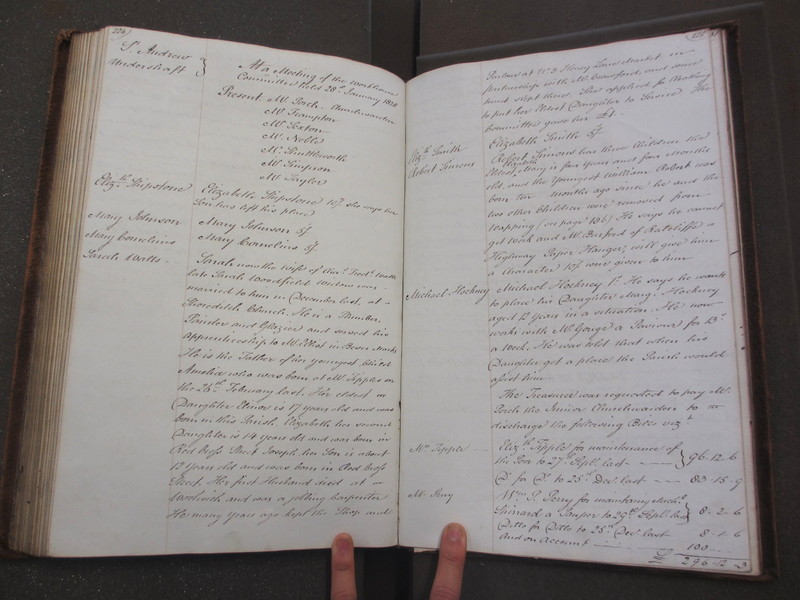 226
St. Andrew
Undershaft
At a Meeting of the Workhouse
Committee held 28th January 1824
Present Mr. Pack Churchwarden
Mr. Frampton
Mr. Sexton
Mr. Noble
Mr. Shuttleworth
Mr. Simpson
Mr. Taylor
Elizth. Shipstone
Elizabeth Shipstone 10/. She says her
Son has left his place
Mary Johnson
Mary Johnson 5/.
Mary Comelines
Mary Comelines 5/.
Sarah Watts
Sarah now the wife of Fredk. Watts
late Sarah Woodfield Widow was
married to him in December last at
Shoreditch Church. He is a Plumber,
Painter and Glazier and served his
apprenticeship to Mr. West in Bevis Marks
He is the Father of her youngest child
Amelia who was born at Mr. Tipples on
the 26th February last. Her eldest
Daughter Elinor is 17 years old and was
born in this Parish. Elizabeth her second
Daughter is 14 years old and was born in
Red Cross Street Joseph her Son is about
12 years old and was born in Red Cross
Street. Her first Husband died at
Woolwich and was a jobbing Carpenter
He many years ago kept the Shop and
Parlour at No. 3 Heavy Lane Market in
partnership with Mr. and some
must slept there. She applied for Clothing
to put her eldest Daughter to Service The
Committee gave her £1.
Elizth. Smith
Elizabeth Smith 5/.
Robert Simons
Robert Simons has three children the
Eldest, Elizabeth Mary is four years and four Months
old, and the Youngest William Robert was
born ten months ago since he and the
two other Children were removed from
Wapping (see page 186) He says he cannot
get Work and Mr. Burford of Ratcliffe
Highway Paper Hanger, will give him
a Character 10/. were given to him
Michael Hockney
Michael Hockney 1/. He says he wants
to place his Daughter Mary Hockney
aged 12 Years in a situation. He now
works with Mr. Gouge a Paviour for 13/.
a Week. He was told that when his
Daughter got a place the Parish would
assist him
The Treasurer was requested to pay Mr.
Pack the Junior Churchwarden to
discharge the following Bills vizt.
Mrs. Tipple
Elizth. Tipple for maintenance of
the Poor to 27th Septr. last 96-12-6
Do. for Do. to 25th Decr. last 83-15-9
Mr. Perry
Wm. P. Perry for maintaing
a Pauper to 29th Septr. last 8-2-6
Ditto for Ditto to 25th Decr. last 8-1-6
And on Account 100
£ 296-12-3